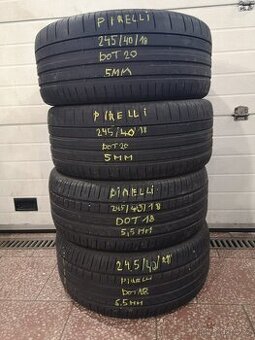 PIRELLI
245/40/18
DOT 20
5MM
PIRELLI
245/40 18
DOT 20
5MM
PIRELLI
245/40/18
DOT 18
5,5MM
245/40/R18
PIRELLI
DOT 18
6.5MM